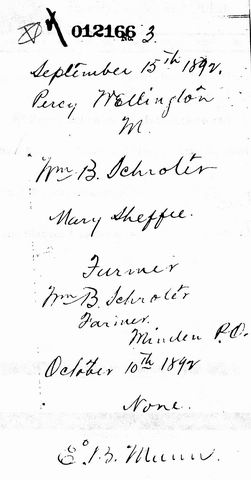 012166 No 3.
September 15th 1892.
Percy Wellington
M.
Wm B. Schroter
Mary Sheffie.
Farmer
Wm B. Schroter
Farmer.
Minden P.O.
October 10th 1892
None.
E. B. Munn.